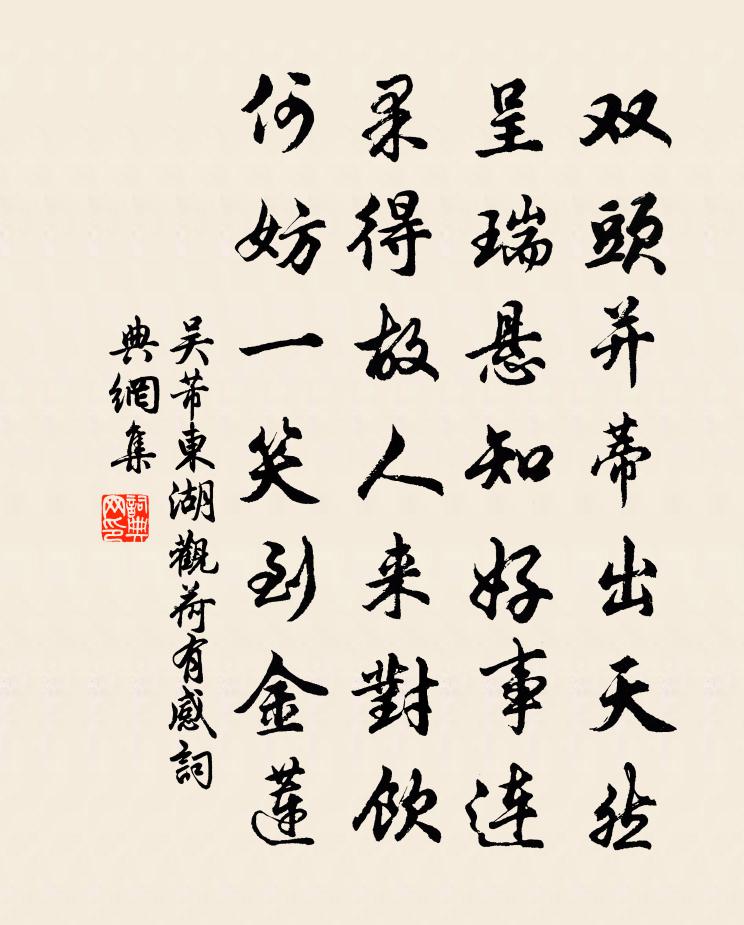 双頭并蒂出天然
呈瑞悬知好事連
果得故人来對飲
何妨一笑到金蓮
吴芾東湖觀荷有感詞
典網集
詞典網印